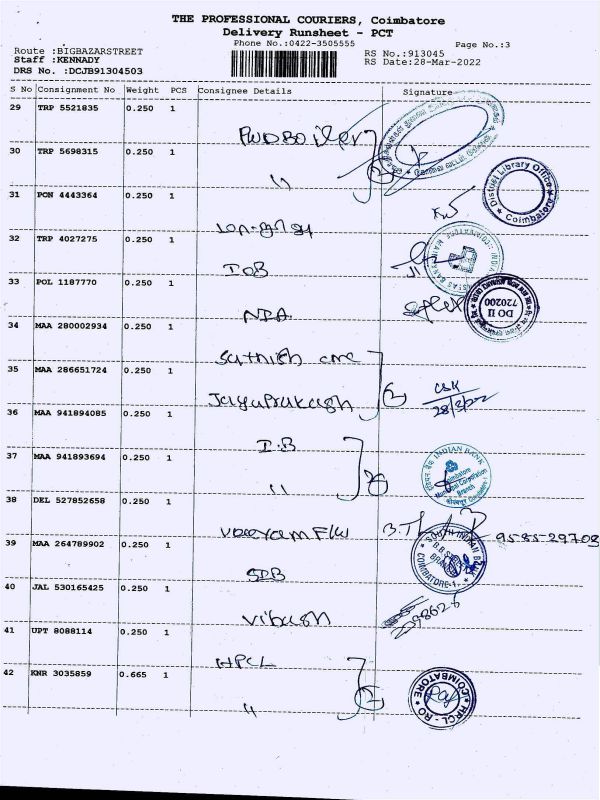 THE PROFESSIONAL COURIERS, Coimbatore
Delivery Runsheet - PCT
Phone No.:0422-3505555
Page No.:3
Route :BIGBAZARSTREET
Staff :KENNADY
DRS No. :DCJB91304503
RS No.:913045
RS Date:28-Mar-2022
S No Consignment No Weight PCS Consignee Details Signature
29 TRP 5521835 0.250 1
30 TRP 5698315 0.250 1 "
District Library Office
Coimbatore
31 PON 4443364 0.250 1
32 TRP 4027275 0.250 1 IOB
33 POL 1187770 0.250 1 NIA
DO II
720200
34 MAA 280002934 0.250 1 Sathish
35 MAA 286651724 0.250 1 Jayaprakash
28/3/22
36 MAA 941894085 0.250 1 I.B
37 MAA 941893694 0.250 1 "
INDIAN BANK
Coimbatore
Municipal Corporation
Branch
38 DEL 527852658 0.250 1
95-85-29709
39 MAA 264789902 0.250 1 SIB
SOUTH INDIAN BANK
COIMBATORE-1
40 JAL 530165425 0.250 1 Vibush
41 UPT 8088114 0.250 1 HPCL
42 KNR 3035859 0.665 1 "
HPCL - RO
COIMBATORE